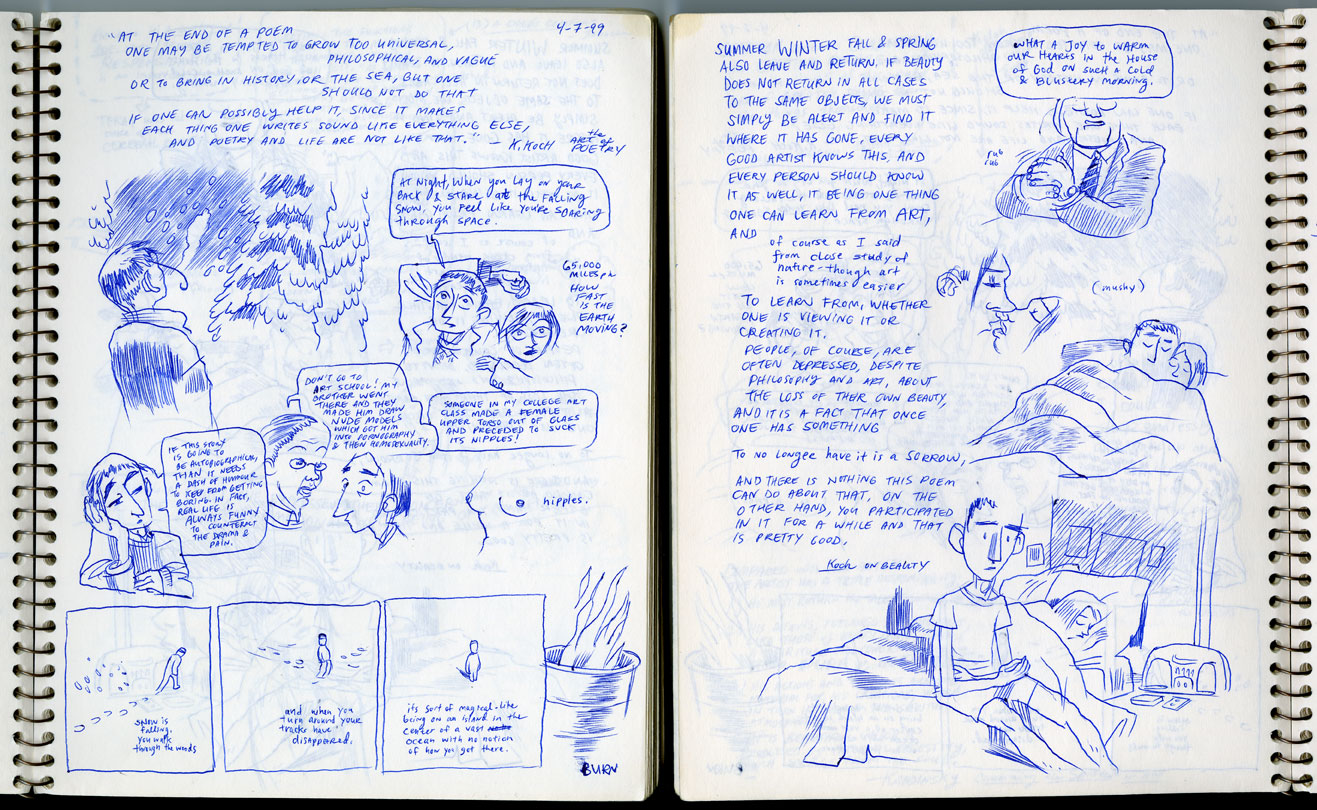 "AT THE END OF A POEM
4-7-99
ONE MAY BE TEMPTED TO GROW TOO UNIVERSAL,
PHILOSOPHICAL, AND VAGUE
OR TO BRING IN HISTORY, OR THE SEA, BUT ONE
SHOULD NOT DO THAT
IF ONE CAN POSSIBLY HELP IT, SINCE IT MAKES
EACH THING ONE WRITES SOUND LIKE EVERYTHING ELSE,
AND POETRY AND LIFE ARE NOT LIKE THAT." — K. KOCH
the
ART of
POETRY
At Night, when you lay on your
BACK & STARE at the FALLING
SNOW, you feel like you're SOARING
through SPACE.
65,000
MILES,
HOW
FAST
IS THE
EARTH
MOVING?
DON'T GO TO
ART SCHOOL! MY
BROTHER WENT
THERE AND THEY
MADE HIM DRAW
NUDE MODELS
WHICH GOT HIM
INTO PORNOGRAPHY
& THEN HOMOSEXUALITY.
SOMEONE IN MY COLLEGE ART
CLASS MADE A FEMALE
UPPER TORSO OUT OF GLASS
AND PRECEDED TO SUCK
ITS NIPPLES!
IF THIS STORY
IS GOING TO
BE AUTOBIOGRAPHICAL,
THAN IS NEEDS
A DASH OF HUMOUR
TO KEEP FROM GETTING
BORING. IN FACT,
REAL LIFE IS
ALWAYS FUNNY
TO COUNTERACT
THE DRAMA &
PAIN.
hipples.
SNOW is
falling.
you walk
through the woods
and when you
turn around your
tracks have
disappeared.
it's sort of magical-like
being on an island in the
center of a vast
ocean with no notion
of how you got there.
BURN
SUMMER WINTER FALL & SPRING
ALSO LEAVE AND RETURN. IF BEAUTY
DOES NOT RETURN IN ALL CASES
TO THE SAME OBJECTS, WE MUST
SIMPLY BE ALERT AND FIND IT
WHERE IT HAS GONE, EVERY
GOOD ARTIST KNOWS THIS, AND
EVERY PERSON SHOULD KNOW
IT AS WELL, IT BEING ONE THING
ONE CAN LEARN FROM ART,
AND
of course as I said
from close study of
nature—though art
is sometimes easier
TO LEARN FROM, WHETHER
ONE IS VIEWING IT OR
CREATING IT.
PEOPLE, OF COURSE, ARE
OFTEN DEPRESSED, DESPITE
PHILOSOPHY AND ART, ABOUT
THE LOSS OF THEIR OWN BEAUTY,
AND IT IS A FACT THAT ONCE
ONE HAS SOMETHING
TO NO LONGER HAVE IT IS A SORROW,
AND THERE IS NOTHING THIS POEM
CAN DO ABOUT THAT, ON THE
OTHER HAND, YOU PARTICIPATED
IN IT FOR A WHILE AND THAT
IS PRETTY GOOD.
Koch ON BEAUTY
WHAT A JOY TO WARM
OUR HEARTS IN THE HOUSE
OF GOD ON SUCH A COLD
& BLUSTERY MORNING.
rub
rub
(mushy)